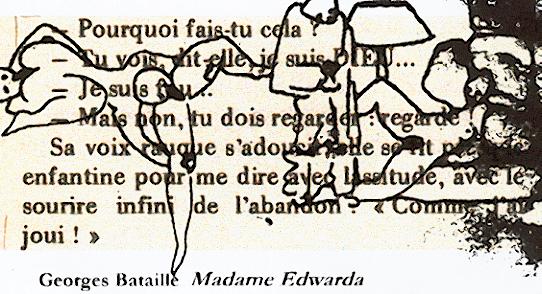 — Pourquoi fais-tu cela ?
— Tu vois, dit-elle, je suis DIEU...
— Je suis fou...
— Mais non, tu dois regarder : regarde !
Sa voix rauque s'adoucit, elle se fit
enfantine pour me dire avec lassitude, avec le
sourire infini de l'abandon : « Comme j'ai
joui ! »
Georges Bataille Madame Edwarda